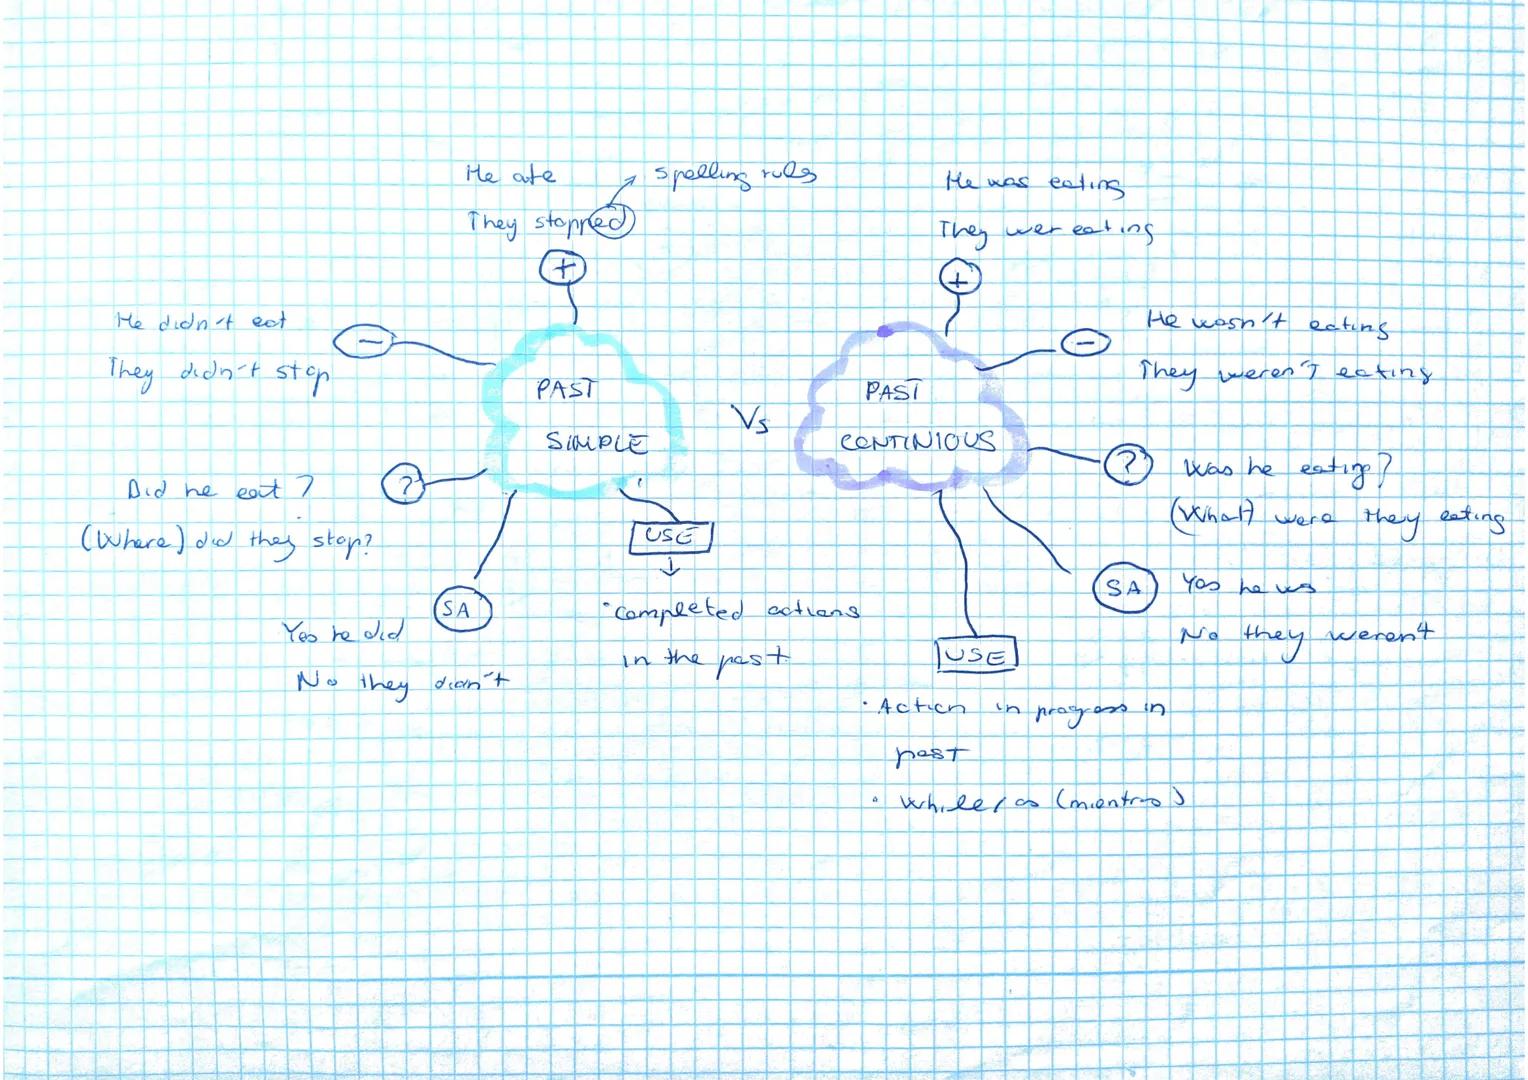 He ate
spelling rules
They stopped
+
He didn't eat
They didn't stop
-
PAST
SIMPLE
?
Did he eat?
(Where) did they stop?
SA
Yes he did
No they didn't
USE
• completed actions
in the past
Vs
He was eating
They wer eating
+
-
He wasn't eating
They weren't eating
PAST
CONTINIOUS
?
Was he eating?
(What) were they eating
SA
Yes he
No they weren't
USE
• Action in progress in
past
• While/as (mientras)